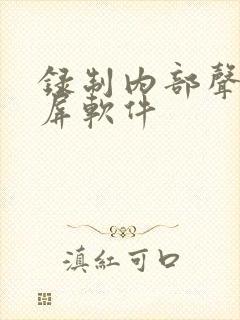 録制內部聲
屏軟件
滇紅可口